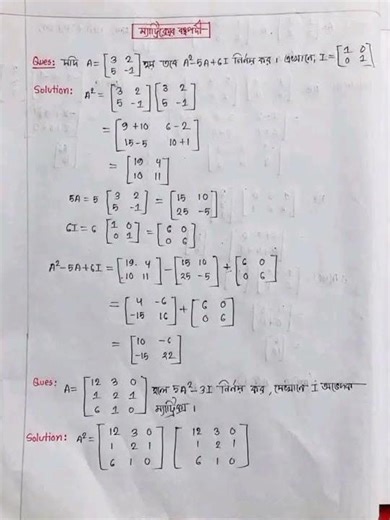 ম্যাট্রিক্সের বহুপদী
Ques: যদি A = [3 2; 5 -1] হয় তবে A² - 5A + 6I নির্ণয় কর। এখানে, I = [1 0; 0 1]
Solution: A² = [3 2; 5 -1] [3 2; 5 -1]
= [9+10 6-2; 15-5 10+1]
= [19 4; 10 11]
5A = 5 [3 2; 5 -1] = [15 10; 25 -5]
6I = 6 [1 0; 0 1] = [6 0; 0 6]
A² - 5A + 6I = [19 4; 10 11] - [15 10; 25 -5] + [6 0; 0 6]
= [4 -6; -15 16] + [6 0; 0 6]
= [10 -6; -15 22]
Ques: A = [12 3 0; 1 2 1; 6 1 0] হলে 5A² - 3I নির্ণয় কর, যেখানে I অভেদক ম্যাট্রিক্স।
Solution: A² = [12 3 0; 1 2 1; 6 1 0] [12 3 0; 1 2 1; 6 1 0]